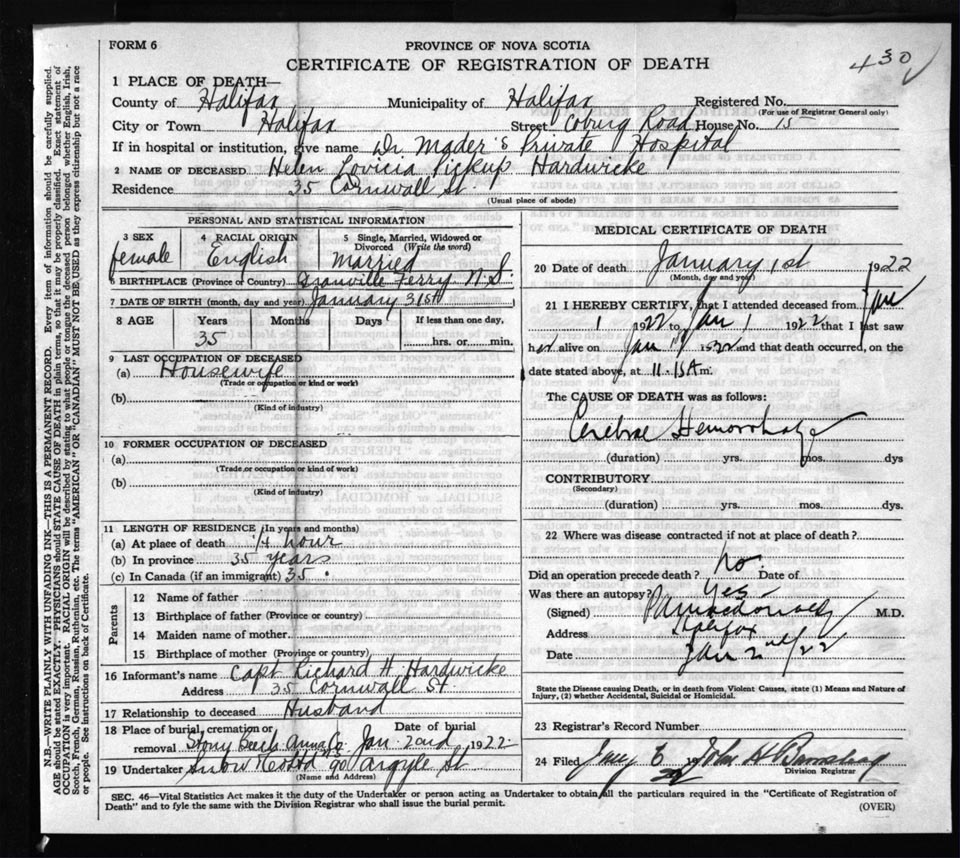 FORM 6
PROVINCE OF NOVA SCOTIA
CERTIFICATE OF REGISTRATION OF DEATH
430
1 PLACE OF DEATH—
County of Halifax Municipality of Halifax Registered No.
(For use of Registrar General only)
City or Town Halifax Street Coburg Road House No. 15
If in hospital or institution, give name Dr Mader's Private Hospital
2 NAME OF DECEASED Helen Lovicia Pickup Hardwicke
Residence 35 Cornwall St.
(Usual place of abode)
PERSONAL AND STATISTICAL INFORMATION
3 SEX 4 RACIAL ORIGIN 5 Single, Married, Widowed or Divorced (Write the word)
female English Married
6 BIRTHPLACE (Province or Country) Granville Ferry N.S.
7 DATE OF BIRTH (month, day and year) January 31st
8 AGE Years Months Days If less than one day,
35 hrs. or min.
9 LAST OCCUPATION OF DECEASED
(a) Housewife
(Trade or occupation or kind or work)
(b)
(Kind of industry)
10 FORMER OCCUPATION OF DECEASED
(a)
(Trade or occupation or kind of work)
(b)
(Kind of industry)
11 LENGTH OF RESIDENCE (In years and months)
(a) At place of death hour
(b) In province 35 years
(c) In Canada (if an immigrant) 35.
Parents
12 Name of father
13 Birthplace of father (Province or country)
14 Maiden name of mother
15 Birthplace of mother (Province or country)
16 Informant's name Capt Richard H. Hardwicke
Address 35 Cornwall St.
17 Relationship to deceased Husband
18 Place of burial, cremation or removal Date of burial
Stony Beach Anna Co. Jan. 2nd 1922
19 Undertaker Snow & Co Ltd 90 Argyle St
(Name and Address)
MEDICAL CERTIFICATE OF DEATH
20 Date of death January 1st 1922
(Month, day and year)
21 I HEREBY CERTIFY, that I attended deceased from Jan
1 1922 to Jan 1 1922 that I last saw
her alive on Jan 1 1922 and that death occurred, on the
date stated above, at 11.15 A m.
The CAUSE OF DEATH was as follows:
Cerebral Hemorrhage
(duration) yrs. mos. dys
CONTRIBUTORY
(Secondary)
(duration) yrs. mos. dys.
22 Where was disease contracted if not at place of death?
Did an operation precede death? no. Date of
Was there an autopsy? Yes
(Signed) M.D.
Address Halifax
Date Jan 2nd/22
State the Disease causing Death, or in death from Violent Causes, state (1) Means and Nature of
Injury, (2) whether Accidental, Suicidal or Homicidal.
23 Registrar's Record Number
24 Filed John
Division Registrar
SEC. 46—Vital Statistics Act makes it the duty of the Undertaker or person acting as Undertaker to obtain all the particulars required in the "Certificate of Registration of
Death" and to fyle the same with the Division Registrar who shall issue the burial permit.
(OVER)
N.B.—WRITE PLAINLY WITH UNFADING INK—THIS IS A PERMANENT RECORD. Every item of information should be carefully supplied.
AGE should be stated EXACTLY. PHYSICIANS should STATE CAUSE OF DEATH in plain terms, so that it may be properly classified. Exact statement of
OCCUPATION is very important. RACIAL ORIGIN will be described by stating to what people or tongue the deceased person belonged whether English, Irish,
Scotch, French, German, Russian, Ruthenian, etc. The terms "AMERICAN" OR "CANADIAN" MUST NOT BE USED as they express citizenship but not a race
or people. See instructions on back of Certificate.